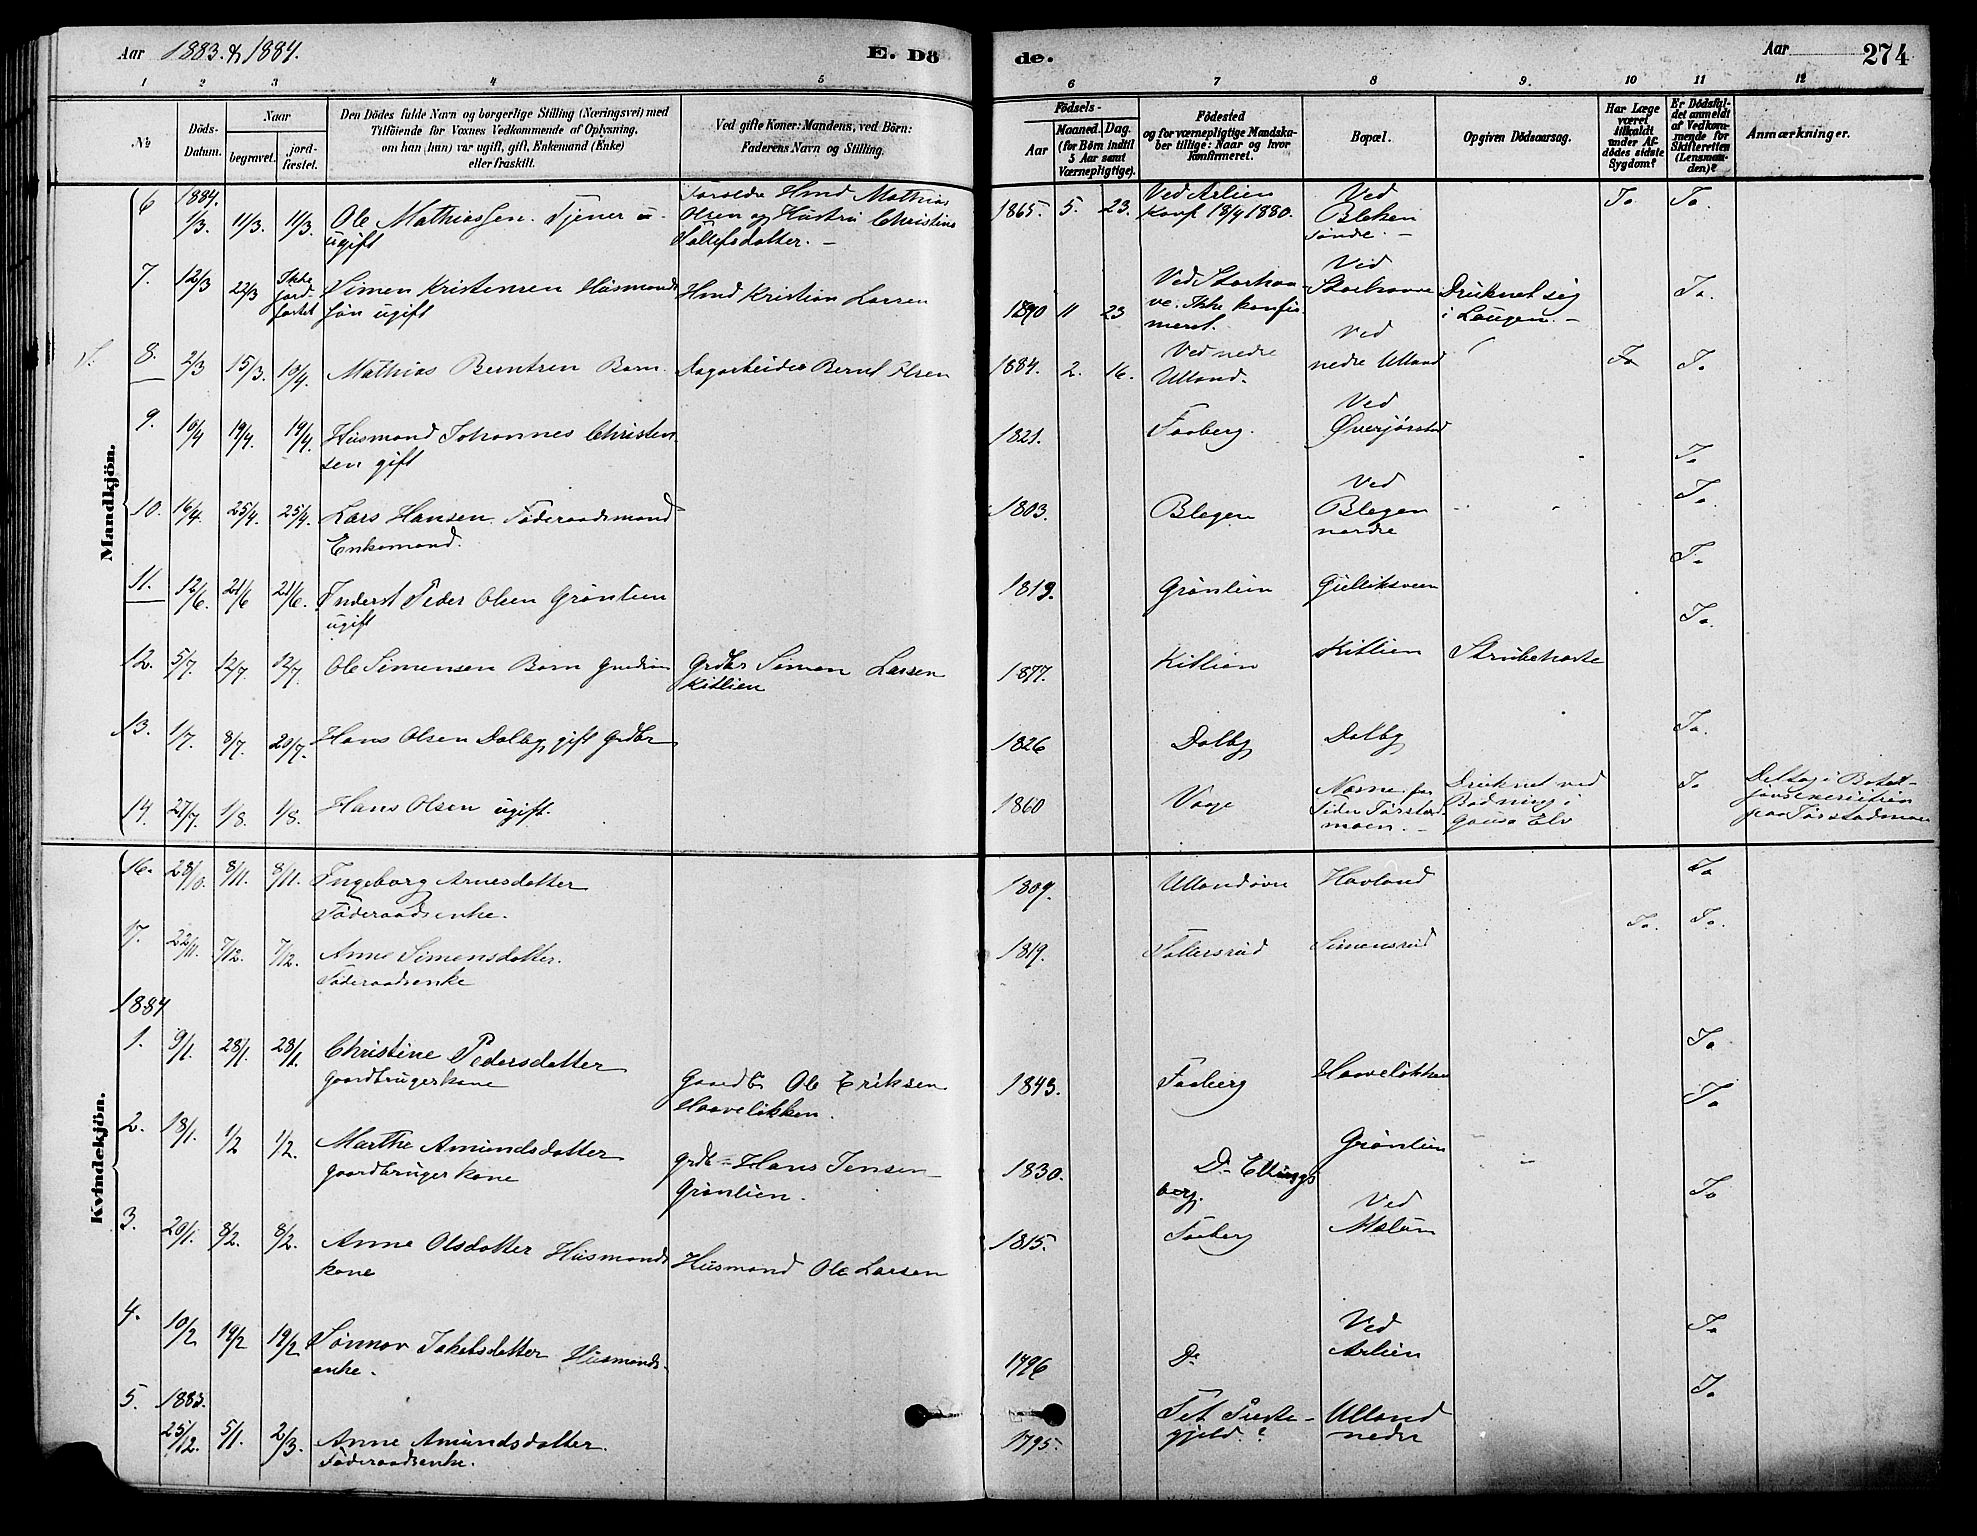 Aar 1883 & 1884.
E. Dö
de.
Aar
274
1 2 3 4 5 6 7 8 9. 10 11 12
No
Döds-
Datum.
Naar
begravet.
jord-
fæstet.
Den Dödes fulde Navn og borgerlige Stilling (Næringsvei) med
Tilföiende for Voxnes Vedkommende af Oplysning,
om han (hun) var ugift, gift, Enkemand (Enke)
eller fraskilt.
Ved gifte Koner: Mandens, ved Börn:
Faderens Navn og Stilling.
Födsels-
Aar
Maaned. Dag.
(for Börn indtil
5 Aar samt
Værnepligtige).
Födested
og for værnepligtige Mandska-
ber tillige: Naar og hvor
konfirmeret.
Bopæl.
Opgiven Dödsaarsag.
Har Læge
været
tilkaldt
under Af-
dödes sidste
Sygdom?
Er Dödsfal-
det anmeldt
af Vedkom-
mende for
Skifteretten
(Lensman-
den)?
Anmærkninger.
Mandkjön.
6 1884. 1/3. 11/3. 11/3. Ole Mathiassen. Tjener
ugift
Forældre Hmd Mathias
Olsen og Hustru Christine
1865. 5. 23. Ved Arlien
Konf. 18/4 1880.
Ved
Bleken
söndre. Ja Ja.
7. 12/3 22/3 Ikke
jord-
fæstet
Simen Kristensen Husmands
sön ugift
Hmd Kristian Larsen
11 23 Ved Storhaa-
ve. Ikke konfir-
meret.
Ved
Storhaave
Druknet sig
i Laugen. Ja.
8. 2/3 15/3. 19/4. Mathias Berntsen Barn. Dagarbeider Bernt Olsen
1884. 2. 16. Ved nedre
Ulland.
Ved
nedre Ulland Ja Ja
9. 10/4 19/4. 19/4. Husmand Johannes Christen
sen gift
1821. Faaberg. Ved
Överjörstad Ja
10. 16/4. 25/4. 25/4. Lars Hansen. Föderaadsmand
Enkemand.
1803. Blegen Ved
Blegen
nordre Ja.
11. 12/6. 21/6 21/6. Inderst Peder Olsen Grönlien
ugift
1819. Grönlien Gulliksveen Ja
12. 5/7. 12/7. 12/7. Ole Simensen Barn
Grdbr Simon Larsen
Kitlien
1877. Kitlien Kitlien Strubehoste Ja.
13. 1/7. 8/7. 20/7. Hans Olsen Dalby, gift Grdbr
1826 Dalby Dalby Ja.
14. 27/7. 1/8. 1/8. Hans Olsen ugift.
1860 Vaage
moen. Druknet ved
Badning i
Gausa Elv Ja Deltog i
paa Jörstadmoen
Kvindekjön.
16. 28/10. 8/11. 8/11. Ingeborg Arnesdatter
Föderaadsenke.
1809. Ullandövre Havland Ja
17. 22/11. 7/12. 7/12. Anne Simensdatter.
Föderaadsenke
1819. Simensrud Ja. Ja.
1884
1. 9/1. 28/1. 28/1. Christine Pedersdatter
Gaardbrugerkone
Gaardb Ole Eriksen
Haavelökken.
1843. Faaberg Haavelökken Ja
2. 18/1. 1/2 1/2. Marthe Amundsdatter
Gaardbrugerkone
Grdb Hans Jensen
Grönlien.
1830. Do Ellings
berg. Grönlien Ja
3. 20/1. 8/2. 8/2. Anne Olsdatter Husmands
kone
Husmand Ole Larsen
1815. Faaberg Ved
Melum Ja
4. 10/2 19/2 19/2 Sönnov Jakobsdatter Husmands-
enke.
1796 Do Ved
Arlien Ja
5. 1883.
25/12. 5/1. 2/3. Anne Amundsdatter.
Föderaadsenke.
1795. Præste-
gjeld. Ulland
nedre Ja